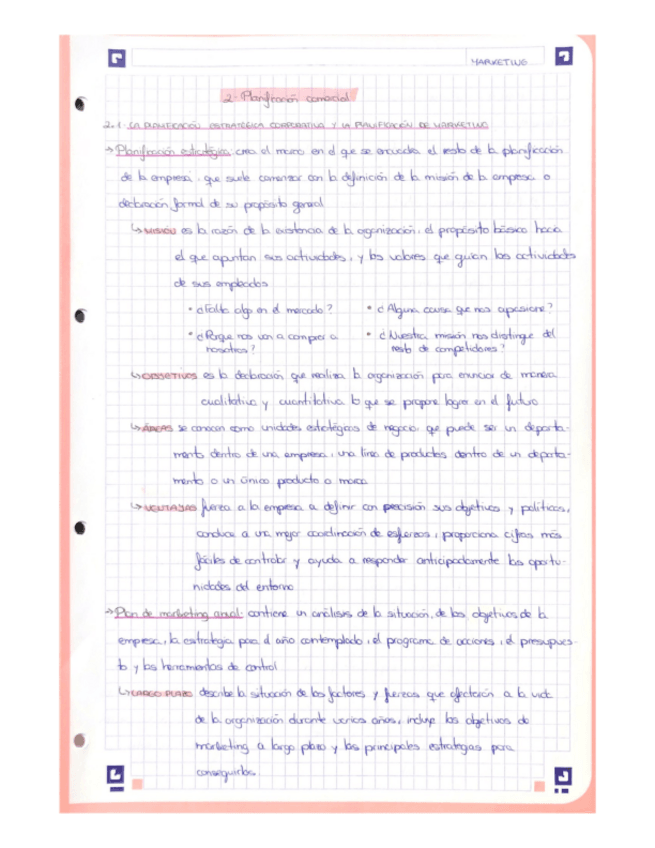 MARKETING
2. Planificación comercial
2.1. LA PLANIFICACIÓN ESTRATÉGICA CORPORATIVA Y LA PLANIFICACIÓN DE MARKETING
→ Planificación estratégica: crea el marco en el que se encuadra el resto de la planificación
de la empresa, que suele comenzar con la definición de la misión de la empresa o
declaración formal de su propósito general
↳ MISIÓN es la razón de la existencia de la organización, el propósito básico hacia
el que apuntan sus actividades, y los valores que guían las actividades
de sus empleados
• ¿Falta algo en el mercado? • ¿Alguna causa que nos apasione?
• ¿Porque nos van a comprar a • ¿Nuestra misión nos distingue del
nosotros? resto de competidores?
↳ OBJETIVOS es la declaración que realiza la organización para enunciar de manera
cualitativa y cuantitativa lo que se propone lograr en el futuro
↳ ÁREAS se conocen como unidades estratégicas de negocio, que puede ser un departa-
mento dentro de una empresa, una línea de productos dentro de un departa-
mento o un único producto o marca
↳ VENTAJAS fuerza a la empresa a definir con precisión sus objetivos y políticas,
conduce a una mejor coordinación de esfuerzos, proporciona cifras más
fáciles de controlar y ayuda a responder anticipadamente las oportu-
nidades del entorno
→ Plan de marketing anual: contiene un análisis de la situación, de los objetivos de la
empresa, la estrategia para el año contemplado, el programa de acciones, el presupues-
to y las herramientas de control
↳ LARGO PLAZO describe la situación de los factores y fuerzas que afectarán a la vida
de la organización durante varios años, incluye los objetivos de
marketing a largo plazo y las principales estrategias para
conseguirlos